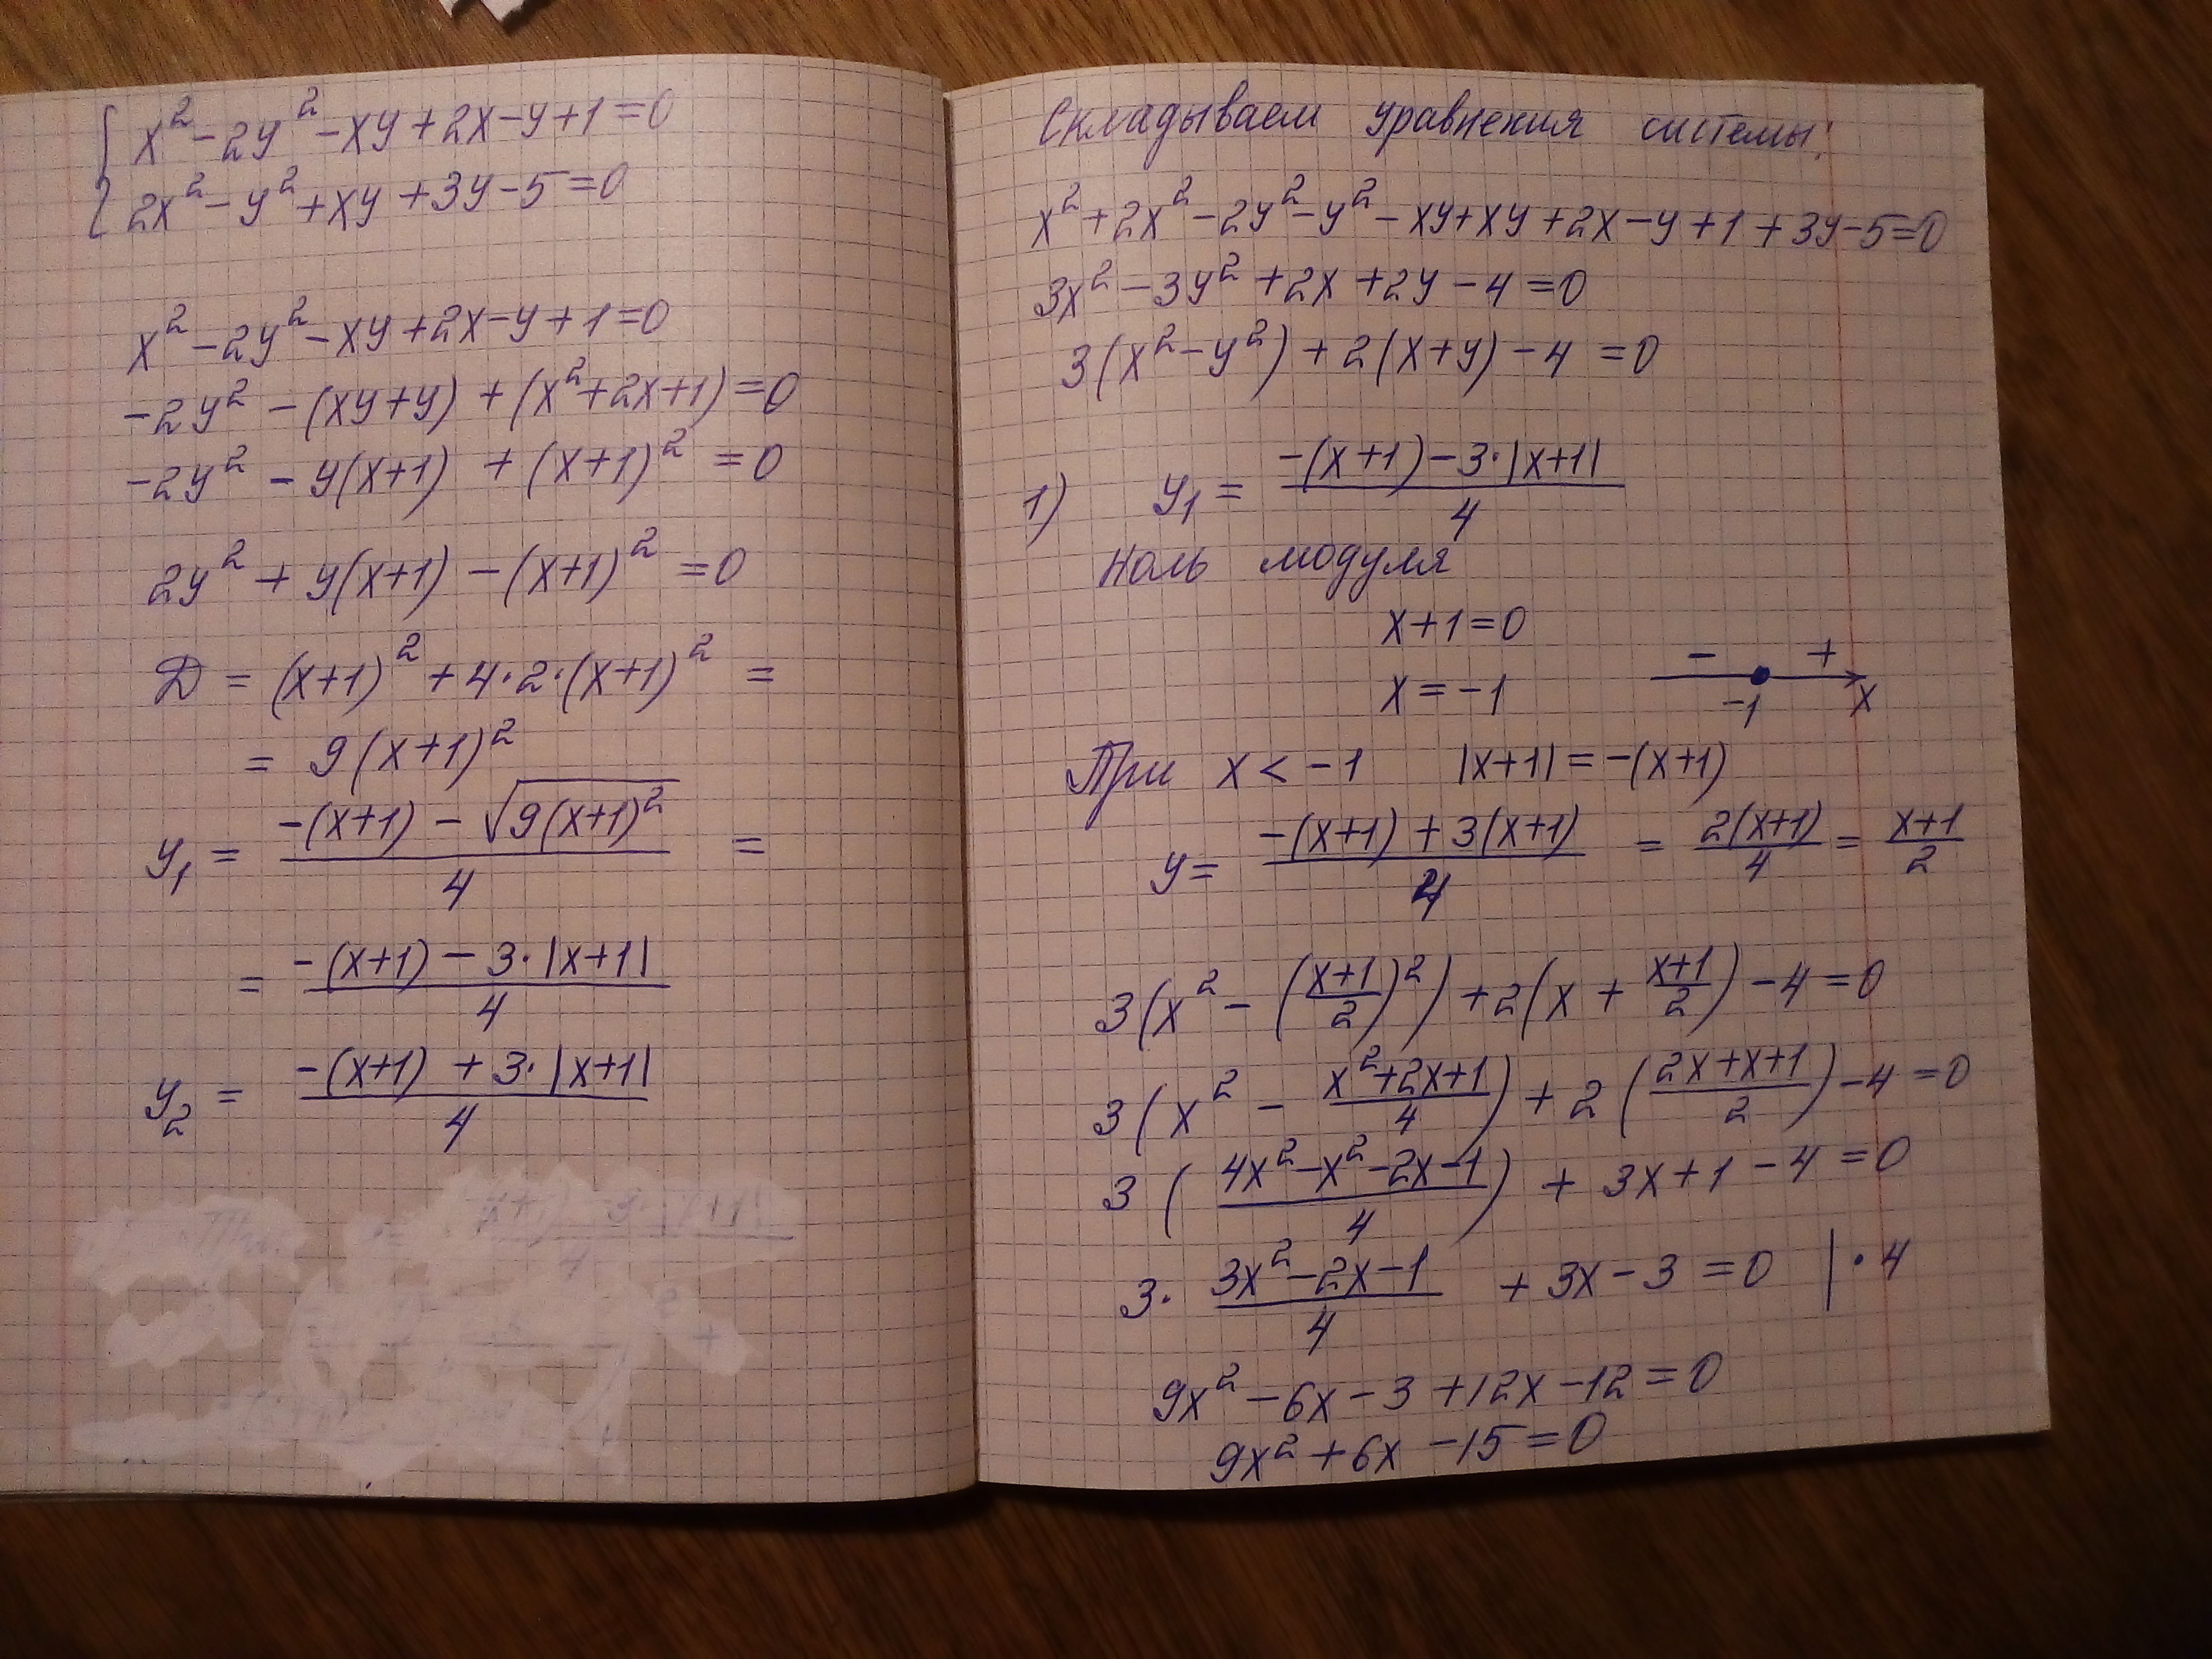 { x² - 2y² - xy + 2x - y + 1 = 0
2x² - y² + xy + 3y - 5 = 0
x² - 2y² - xy + 2x - y + 1 = 0
-2y² - (xy+y) + (x²+2x+1) = 0
-2y² - y(x+1) + (x+1)² = 0
2y² + y(x+1) - (x+1)² = 0
D = (x+1)² + 4·2·(x+1)² =
= 9(x+1)²
y₁ = (-(x+1) - √(9(x+1)²))/4 =
= (-(x+1) - 3·|x+1|)/4
y₂ = (-(x+1) + 3·|x+1|)/4
Складываем уравнения системы:
x² + 2x² - 2y² - y² - xy + xy + 2x - y + 1 + 3y - 5 = 0
3x² - 3y² + 2x + 2y - 4 = 0
3(x² - y²) + 2(x+y) - 4 = 0
1) y₁ = (-(x+1) - 3·|x+1|)/4
Ноль модуля
x+1=0
x = -1
- + -1 x
При x < -1 |x+1| = -(x+1)
y = (-(x+1) + 3(x+1))/4 = 2(x+1)/4 = (x+1)/2
3(x² - ((x+1)/2)²) + 2(x + (x+1)/2) - 4 = 0
3(x² - (x²+2x+1)/4) + 2((2x+x+1)/2) - 4 = 0
3((4x²-x²-2x-1)/4) + 3x + 1 - 4 = 0
3· (3x²-2x-1)/4 + 3x - 3 = 0 |·4
9x² - 6x - 3 + 12x - 12 = 0
9x² + 6x - 15 = 0